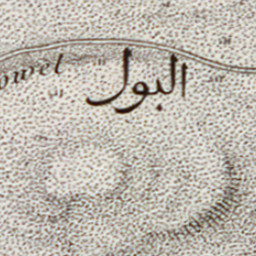 البول
owel